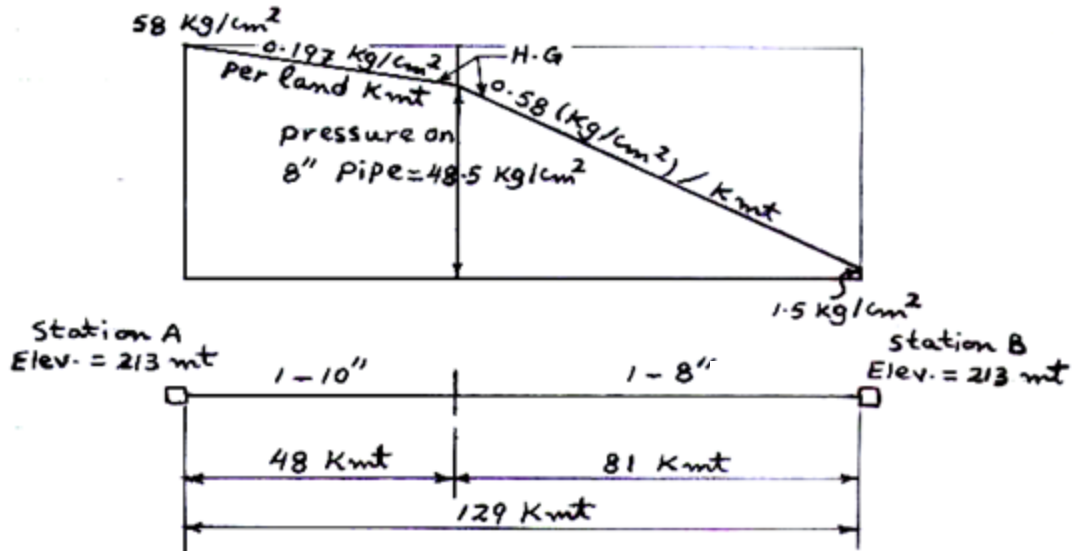 58 Kg/cm²
0.197 Kg/cm²
per land Kmt
H.G
0.58 (Kg/cm²) / Kmt
pressure on
8" pipe=48.5 Kg/cm²
1.5 kg/cm²
Station A
Elev. = 213 mt
Station B
Elev. = 213 mt
1-10"
1-8"
48 Kmt
81 Kmt
129 Kmt